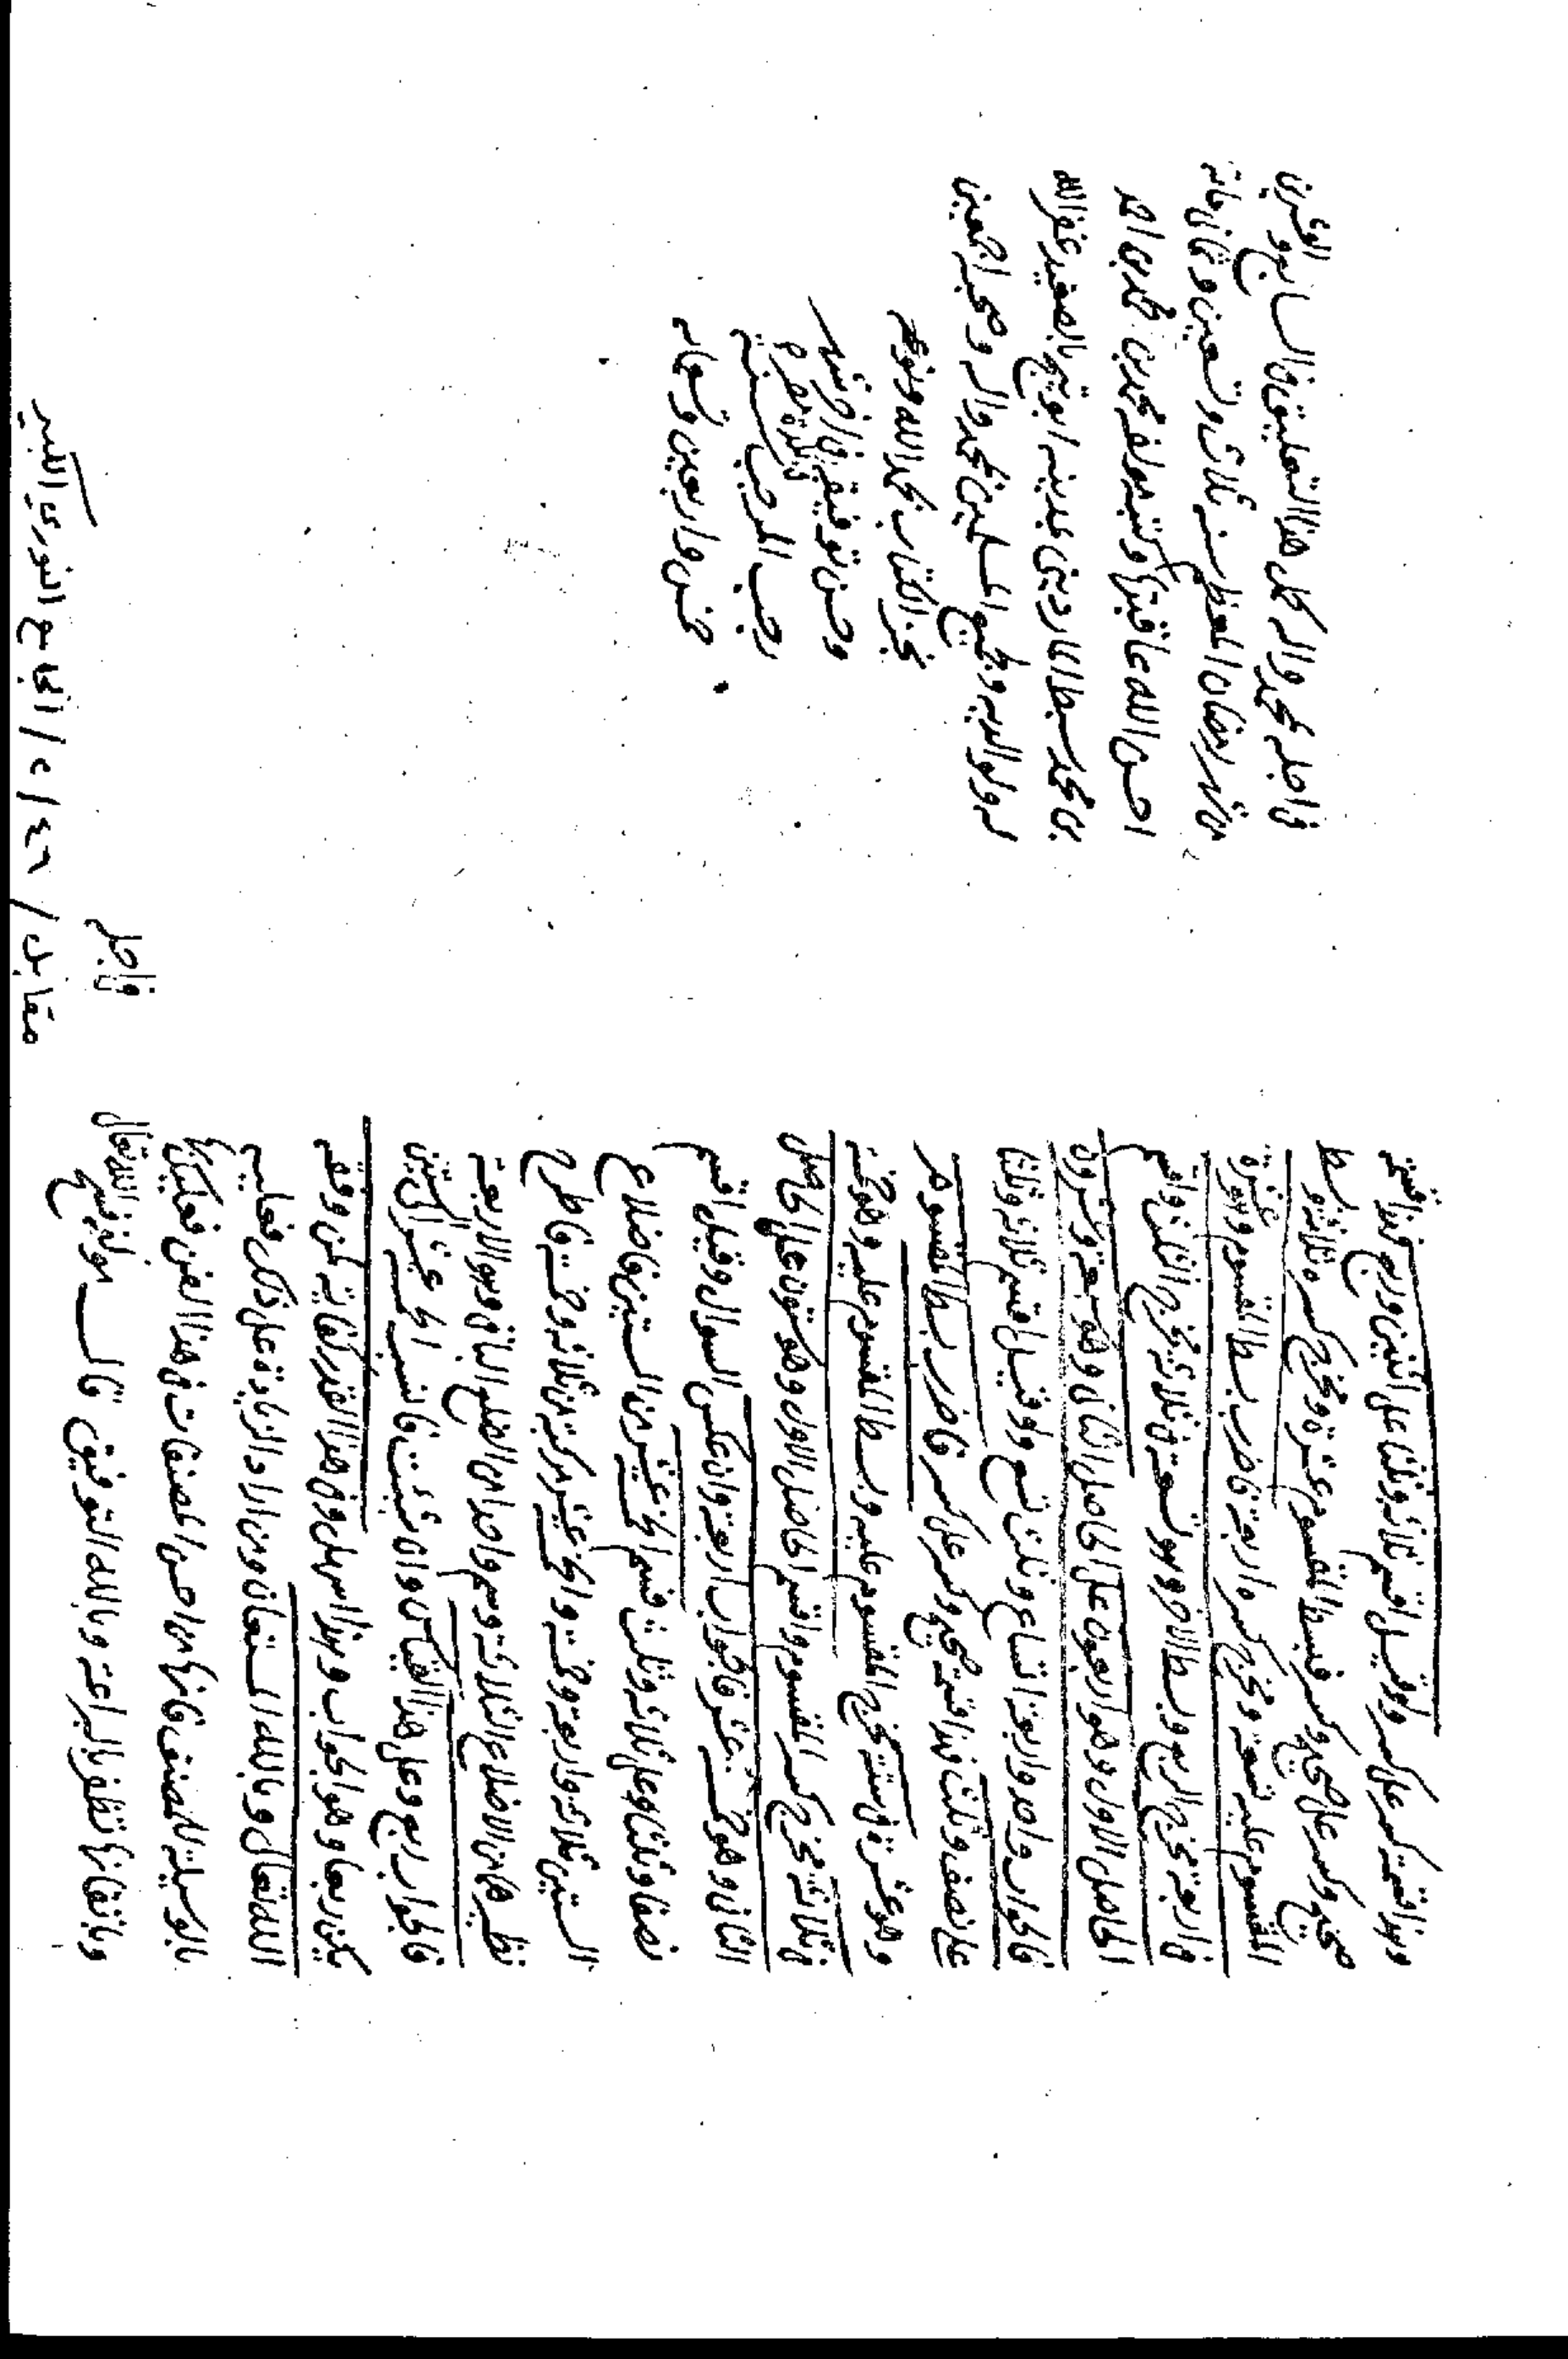 ومنها قسمة كسر على كسر ولو قيل اقسم ثلاثة وثلثا على اثنين وربع فهذا قسمة
صحيح وكسر على صحيح وكسر فبسط المقسوم عشرة ومخرج كسره ثلاثة وبسط
المقسوم عليه تسعة ومخرج كسره اربعة فاضرب بسط المقسوم وهو عشرة
في اربعة مخرج الربع وبسط الاخر وهو تسعة في ثلاثة مخرج الثلث واقسم
الحاصل الاول وهو اربعون على الحاصل الثاني وهو سبعة وعشرون
فالجواب واحد واربعة اتساع وثلث تسع ولو قيل اقسم ثلاثة وثلثا
على نصف وثلث فهذا قسمة صحيح وكسر على كسر فاضرب بسط المقسوم
وهو عشرة في ستة مخرج المقسوم عليه وبسط المقسوم عليه وهو خمسة
في ثلاثة مخرج كسر المقسوم واقسم الحاصل الاول وهو ستون على الحاصل
الثاني وهو خمسة عشر فالجواب اربعة وان عكس السوال وقيل اقسم
نصفا وثلثا على ثلاثة وثلث فسم الخمسة عشر من الستين فاضلاع
الستين ثلاثة واربعة وخمسة والخمسة عشر مركبة من ثلاثة وخمسة فاطرح
نظير هذين الاضلاع الثلاثة وسم واحدا من الضلع الباقي وهو الاربعة
فالجواب ربع وعلى هذا القياس وان شئت فانسب الخمسة عشر الى الستين
تكن ربعا وهو الجواب وهذا سهل وفي هذا القدر كفاية لمن وفقه
الله تعالى وبالله المستعان ومن اراد الزيادة على ذلك فعليه
بالوسيلة للمصنف فانها من احسن المصنفات في هذا الفن فعليك بها
وباتقانها تظفر بالبراعة وبالله التوفيق قال مولفه فسح الله تعالى
في اجله
في اجله بمحمد واله كمل هذا التعليق في السابع والعشرين
من شهر رمضان المعظم سنة ثلاث وتسعين وثمان مائة
احسن الله عاقبتها وكتبه مولفه محمد بن محمد بن احمد
بن محمد سبط المارديني بمدينة ابوتيج بالصعيد غفر الله
له ولوالديه ولجميع المسلمين بمحمد واله وصحبه اجمعين
نجز الكتاب بحمد الله وعونه
وحسن توفيقه في اخر شهر
رجب المرجب سنة
خمس واربعين وتسعمائة
مقابل / ٤٦ / ٥ / الجامع النوري الكبير